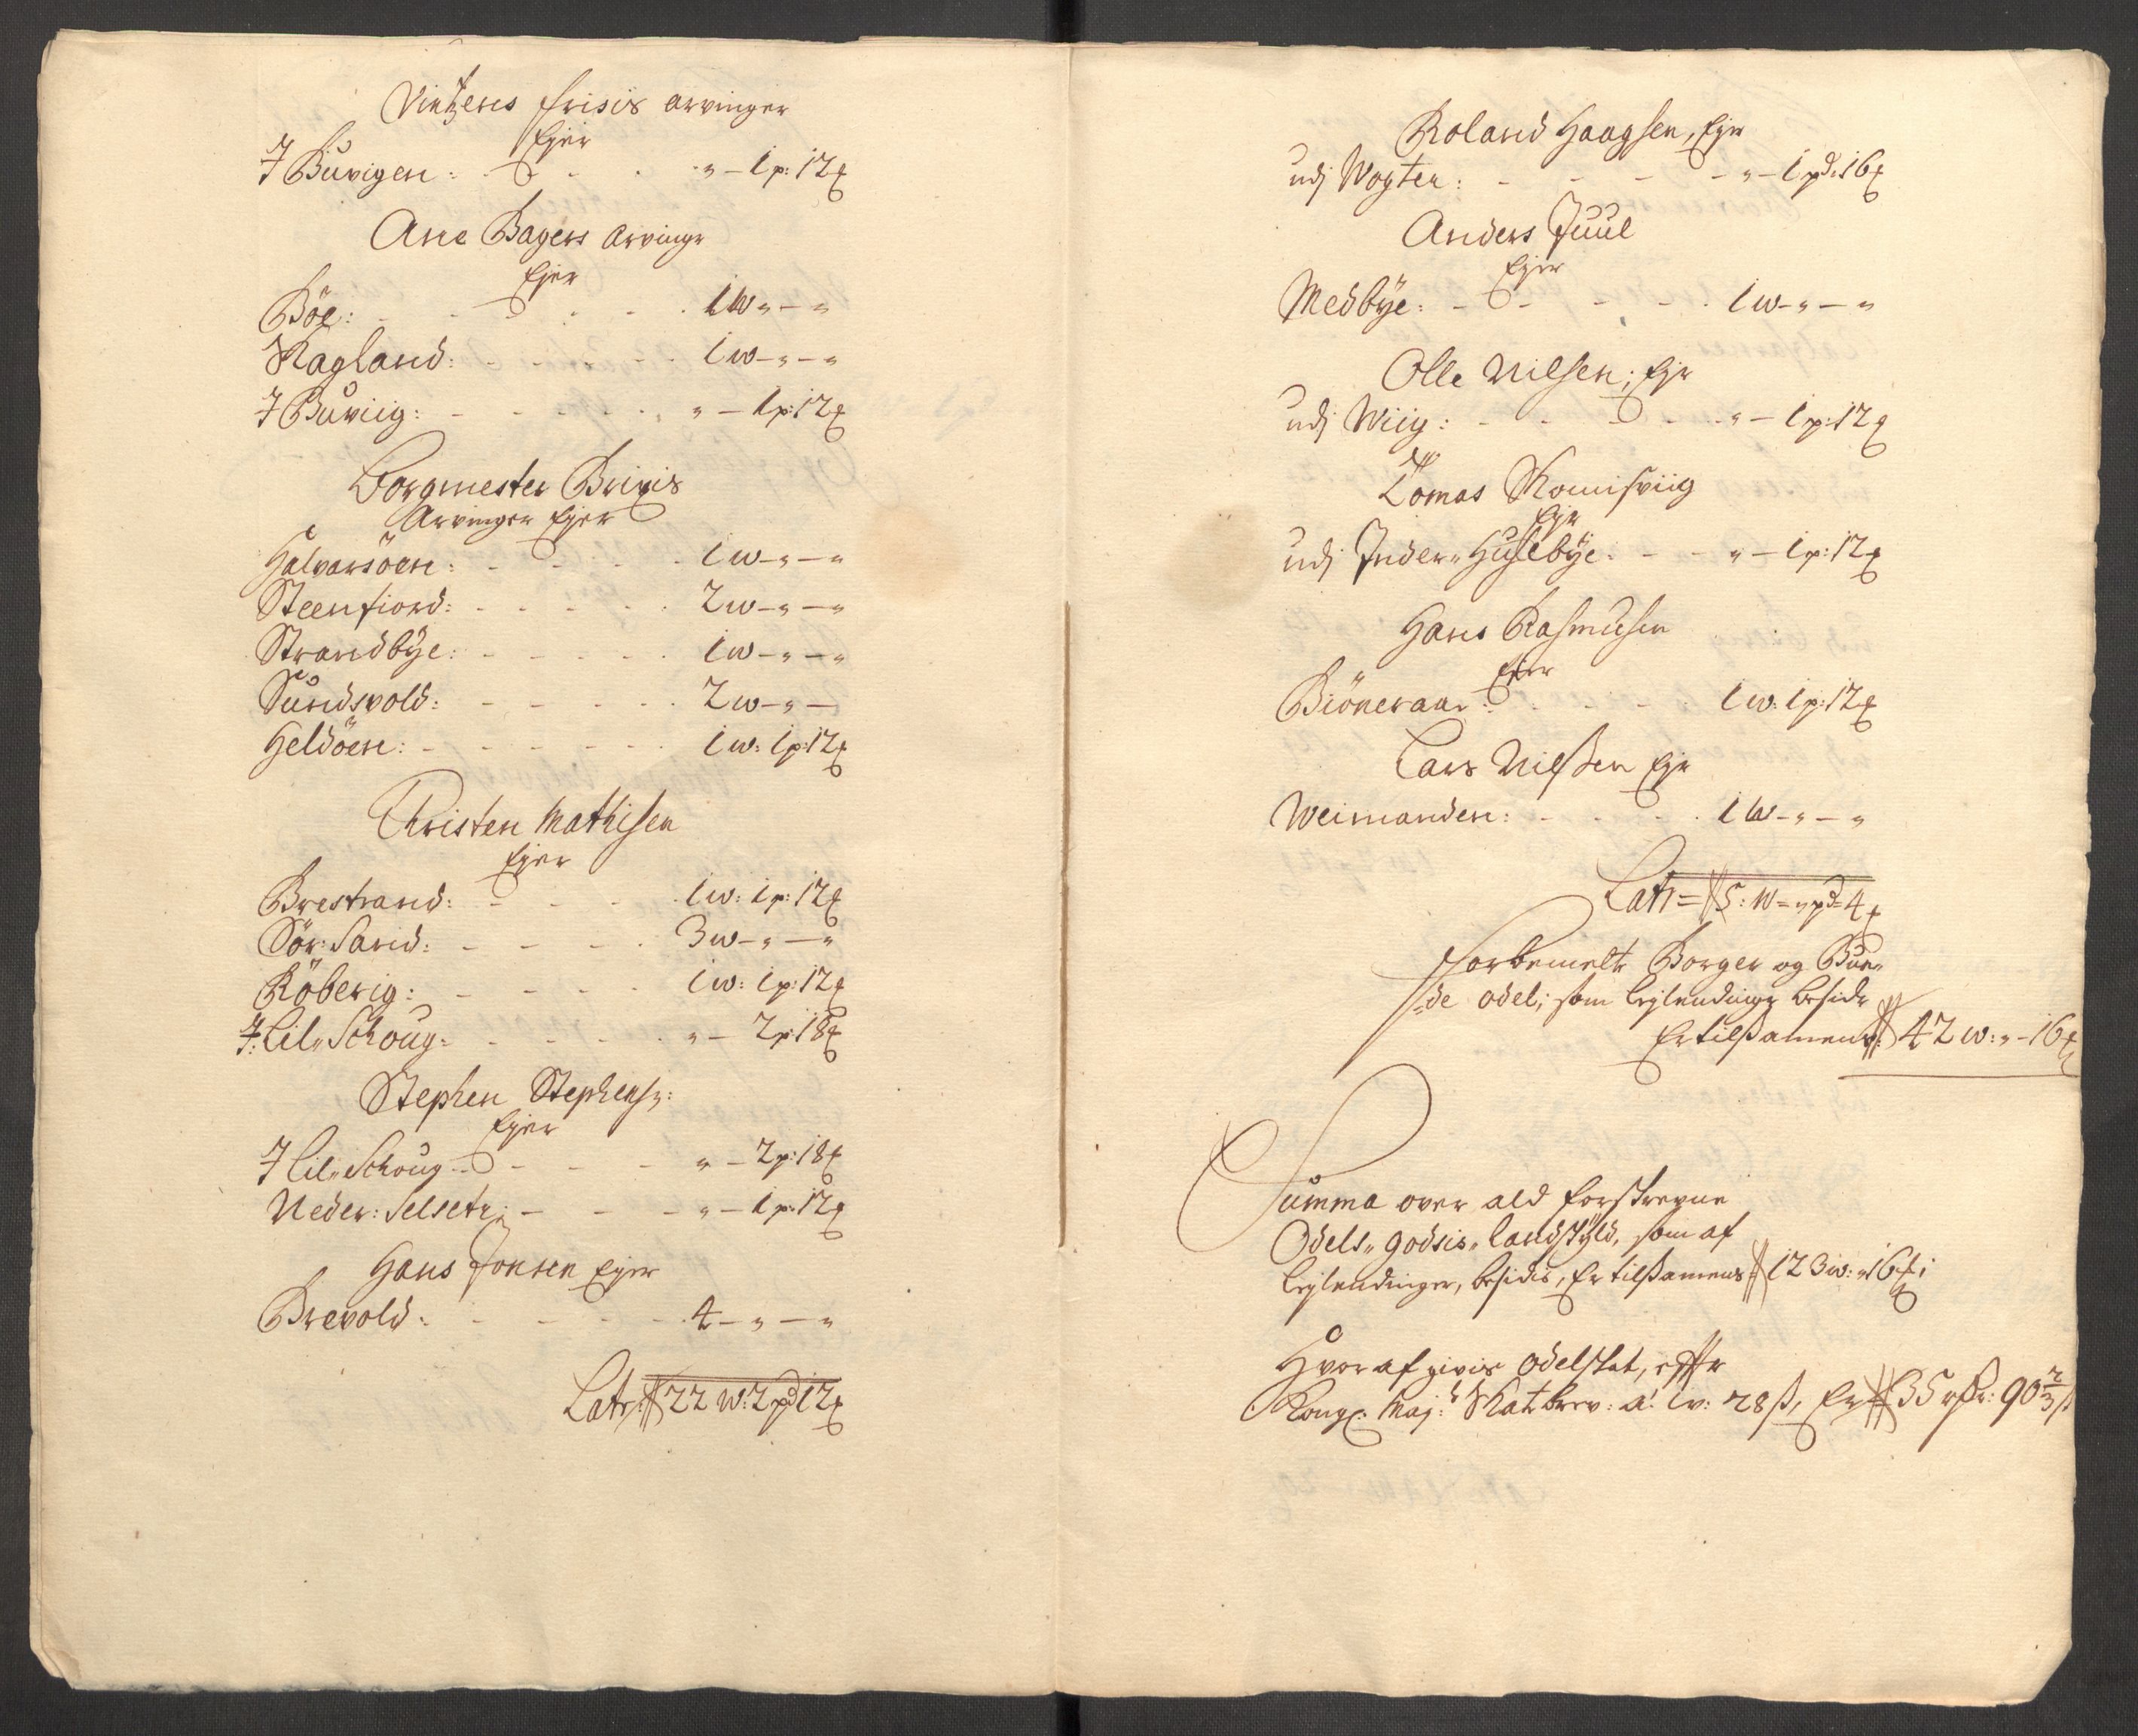 Vintzens frisis arvinger
Ejer
J Buvigen: - - - " - 1 p: 12 ℔
Ane Bagers Arvingr
Ejer
Böe: - - - - 1 w " - "
Kagland: - - - - 1 w - " - "
J Buviig: - - - - " - 1 p: 12 ℔
Borgmester Brixis
Arvinger Ejer
Halvarsöen: - - - - 1 w - " - "
Steenfiord: - - - - 2 w - " - "
Strandbÿe: - - - - 1 w - " - "
Sundsvold: - - - - 2 w - " -
Heldöen: - - - - 1 w: 1 p: 12 ℔
Christen Mathisen
Ejer
Brestrand: - - - 1 w: 1 p: 12 ℔
Sör: Sand: - - - - 3 w - " - "
Röberig: - - - - 1 w: 1 p: 12 ℔
J: Lil" Schoug: - - - - " - 2 p: 18 ℔
Stephen Stephens:
Ejer
J Lil" Schoug - - - - " - 2 p: 18 ℔
Neder: Selsetr: - - - " - 1 p: 12 ℔
Hans Jonsen Ejer
Brevold: - - - - 4 - " - "
Latr: 22 w: 2 pd 12 ℔
Roland Haagsen, Ejer
udj Wogter: - - - - " - 1 pd: 16 ℔
Anders Juul
Ejer
Medbÿe: - - - - 1 w - " - "
Olle Nilsen, Ejr
udj Wiig: - - - - " - 1 p: 12 ℔
Tomas Komisviig
Ejr
udj Inder" Husebÿe: - - " - 1 p: 12 ℔
Hans Rasmusen
Ejer
Biöneraar: - - - 1 w: 1 p: 12 ℔
Lars Nilsen Ejr
Weimanden: - - - 1 w - " - "
Latr = 5: w = " pd = 4 ℔
Forbemelte Borger og Bun-
de odel; som leÿlendinge besidr
Er tilsamens 42 w: " - 16 ℔
Summa over ald forskrevne
Odels" godsis" landskÿld, som af
leÿlendinger, besidis, Er tilsamens 123 w: " 16 ℔;
Hvor af givis odelskat, effter
Kongl: Maj: Skatbrev: a: 1 w: 28 ß, Er 35 rdr: 90 2/3 ß